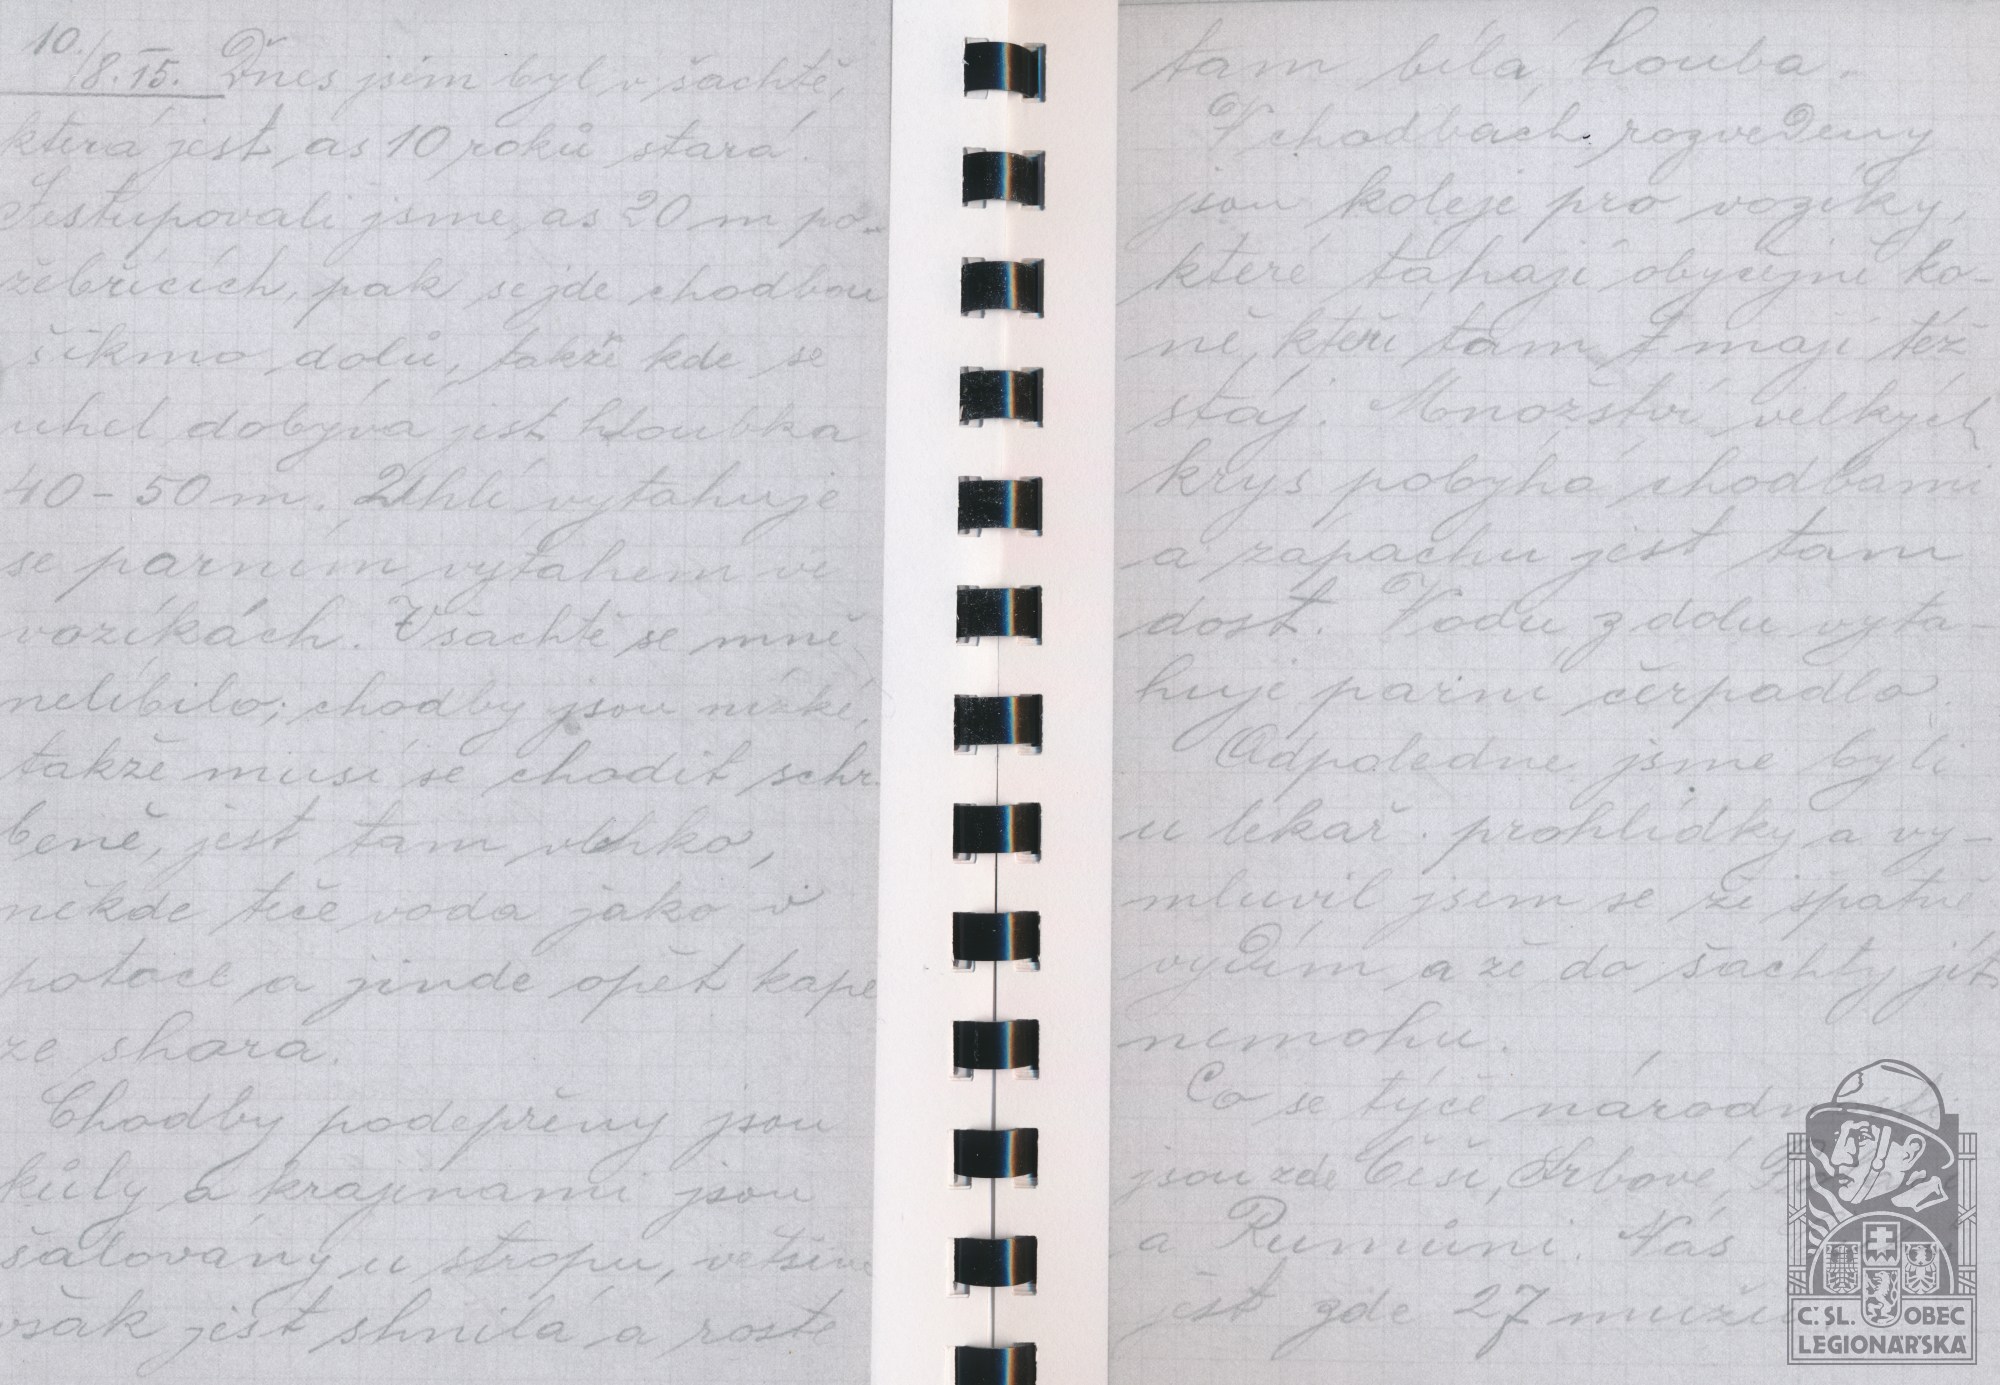 10./8.15. Dnes jsem byl v šachtě,
která jest as 10 roků stará.
Sestupovali jsme as 20 m po
žebřících, pak se jde chodbou
šikmo dolů, takže kde se
uhel dobývá jest hloubka
40-50 m. Uhlí vytahuje
se parním výtahem ve
vozíkách. V šachtě se mně
nelíbilo; chodby jsou nízké,
takže musí se chodit schr-
beně, jest tam vlhko,
někde teče voda jako v
potoce a jinde opět kape
ze shora.
Chodby podepřeny jsou
kůly a krajinami jsou
šalovány u stropu, většina
však jest shnilá a roste
tam bílá houba.
V chodbách rozvedeny
jsou koleje pro vozíky,
které tahají obyčejně ko-
ně, kteří tam mají též
stáj. Množství velkých
krys pobýhá chodbami
a zápachu jest tam
dost. Vodu z dolu vyta-
huje parní čerpadlo.
Odpoledne jsme byli
u lékař. prohlídky a vy-
mluvil jsem se že špatně
vydím a že do šachty jít
nemohu.
Co se týče národností
jsou zde Češi, Srbové,
a Rumuni. Nás
jest zde 27 mužů
Č. SL. OBEC
LEGIONÁŘSKÁ